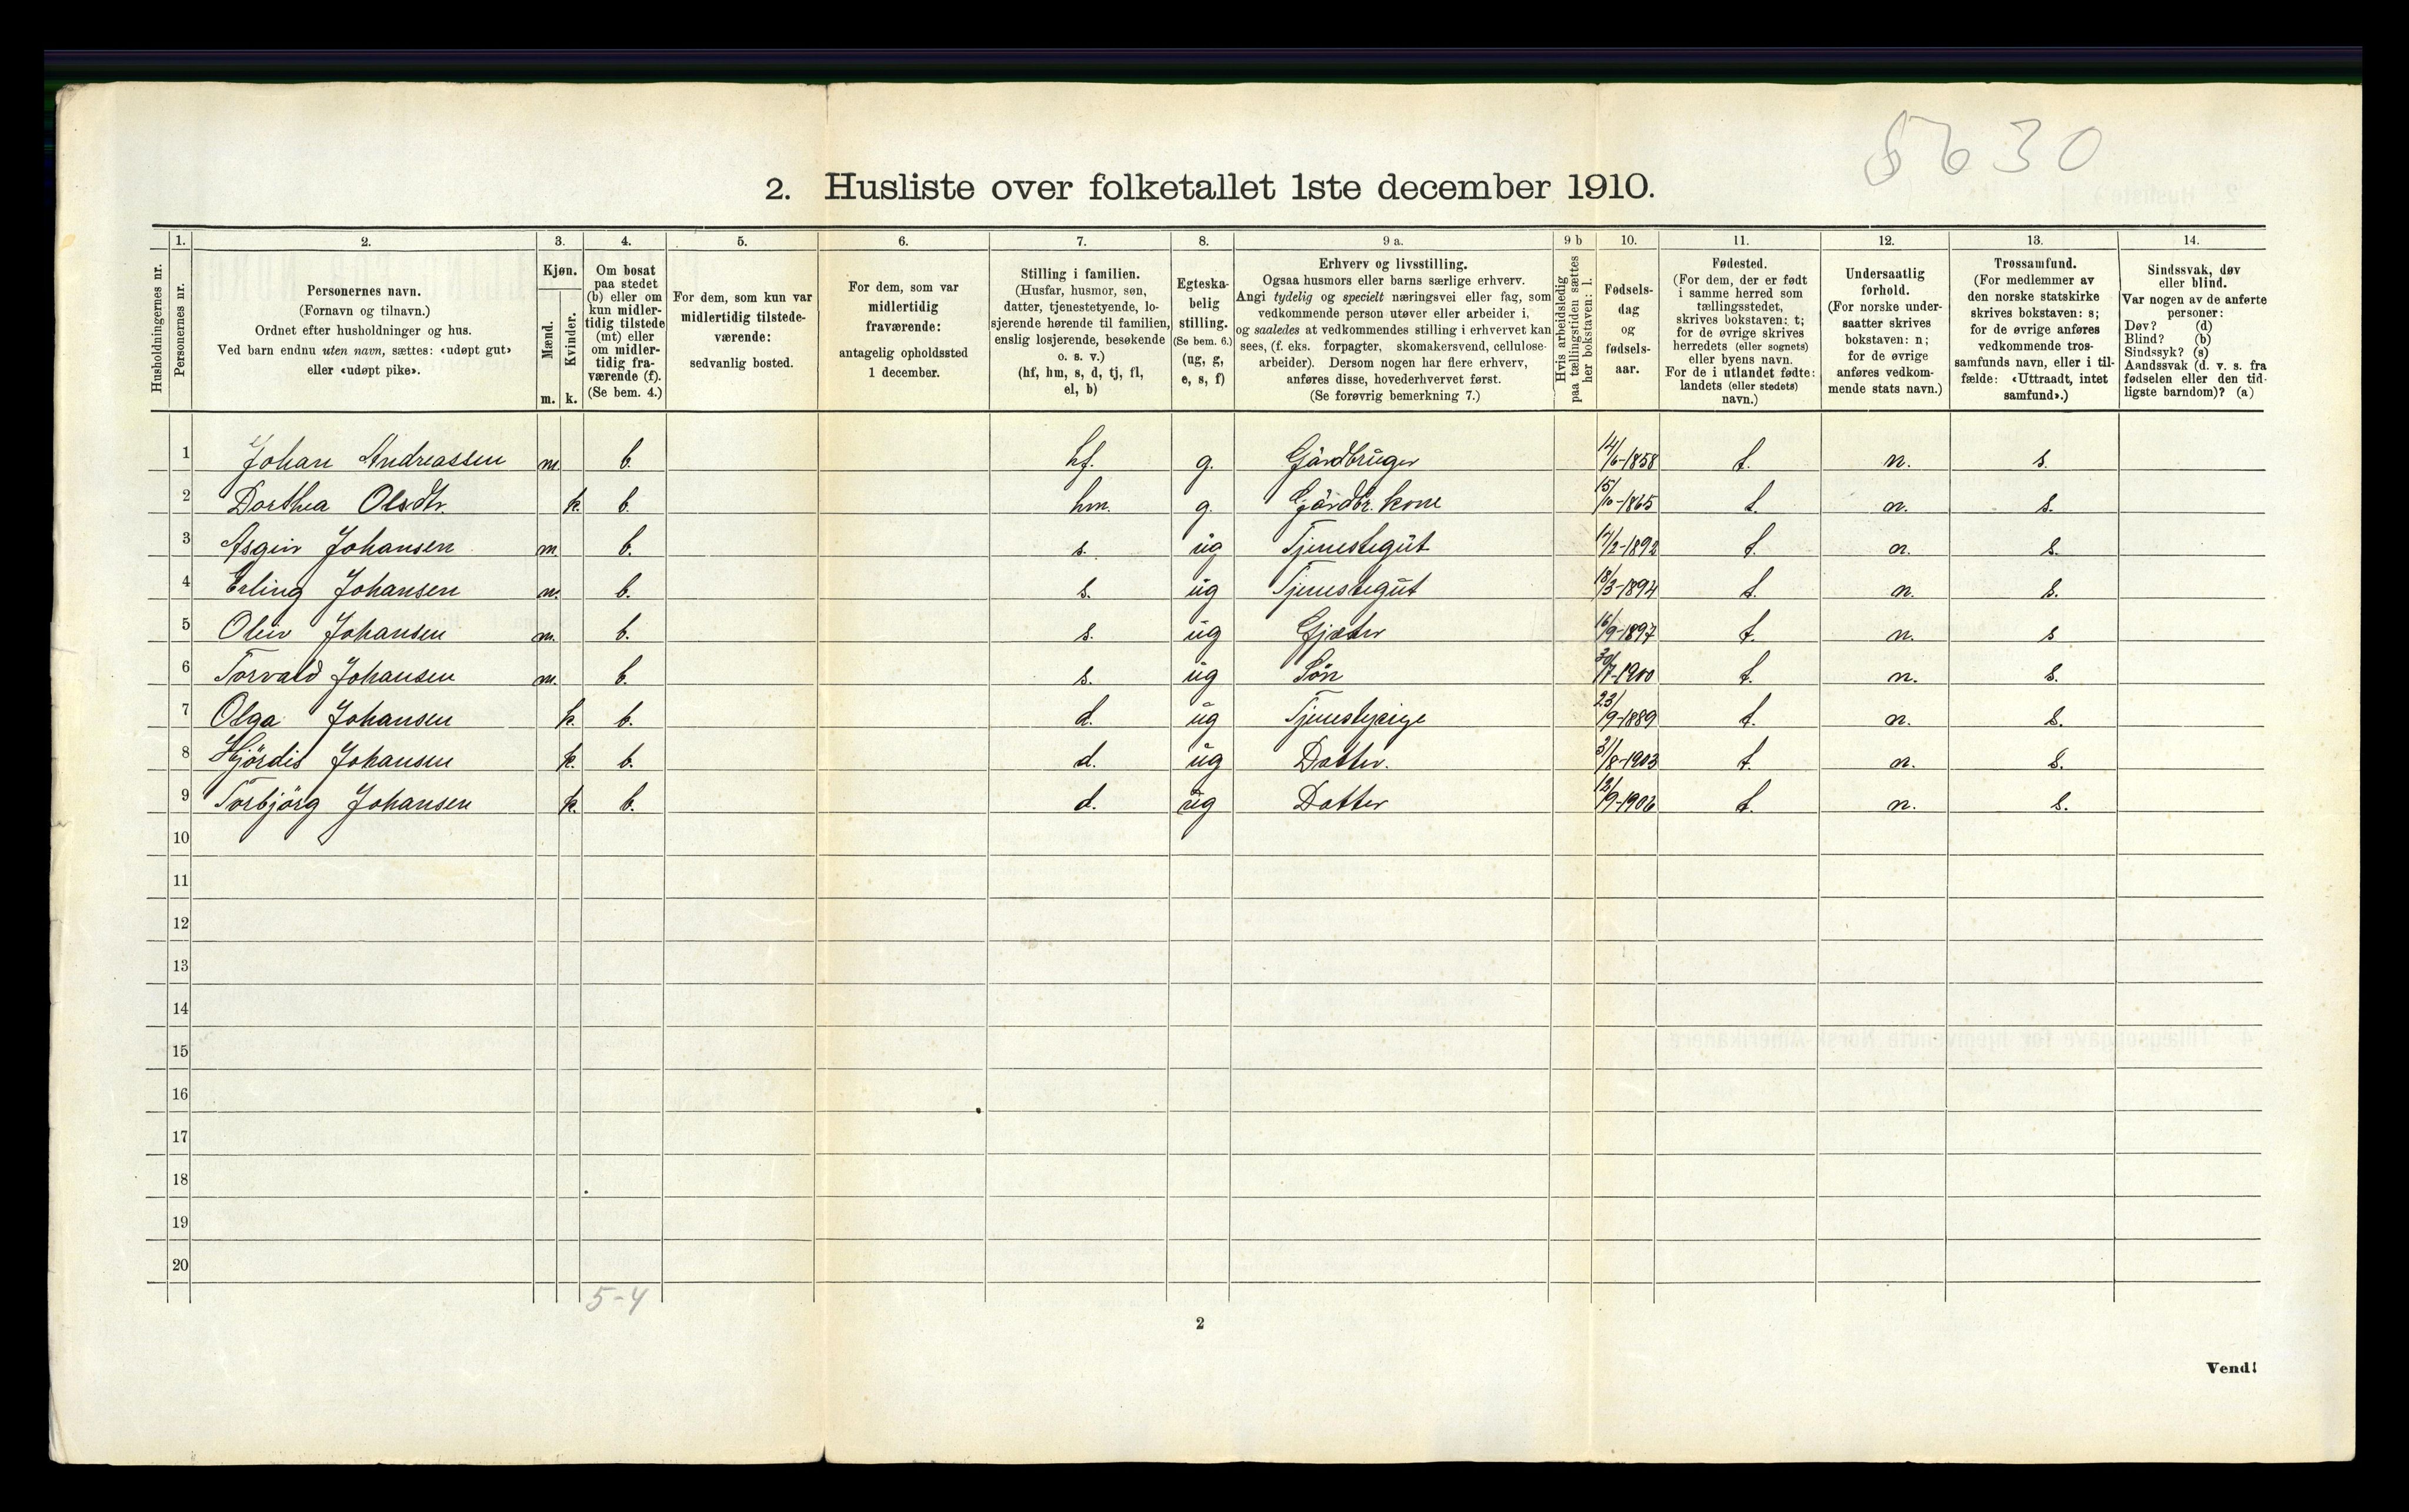 5630
2. Husliste over folketallet 1ste december 1910.
1. 2. 3. 4. 5. 6. 7. 8. 9 a. 9 b 10. 11. 12. 13. 14.
Husholdningernes nr.
Personernes nr.
Personernes navn.
(Fornavn og tilnavn.)
Ordnet efter husholdninger og hus.
Ved barn endnu uten navn, sættes: «udøpt gut»
eller «udøpt pike».
Kjøn.
Mænd.
Kvinder.
m. k.
Om bosat
paa stedet
(b) eller om
kun midler-
tidig tilstede
(mt) eller
om midler-
tidig fra-
værende (f).
(Se bem. 4.)
For dem, som kun var
midlertidig tilstede-
værende:
sedvanlig bosted.
For dem, som var
midlertidig
fraværende:
antagelig opholdssted
1 december.
Stilling i familien.
(Husfar, husmor, søn,
datter, tjenestetyende, lo-
sjerende hørende til familien,
enslig losjerende, besøkende
o. s. v.)
(hf, hm, s, d, tj, fl,
el, b)
Egteska-
belig
stilling.
(Se bem. 6.)
(ug, g,
e, s, f)
Erhverv og livsstilling.
Ogsaa husmors eller barns særlige erhverv.
Angi tydelig og specielt næringsvei eller fag, som
vedkommende person utøver eller arbeider i,
og saaledes at vedkommendes stilling i erhvervet kan
sees, (f. eks. forpagter, skomakersvend, cellulose-
arbeider). Dersom nogen har flere erhverv,
anføres disse, hovederhvervet først.
(Se forøvrig bemerkning 7.)
Hvis arbeidsledig
paa tællingstiden sættes
her bokstaven: l.
Fødsels-
dag
og
fødsels-
aar.
Fødested.
(For dem, der er født
i samme herred som
tællingsstedet,
skrives bokstaven: t;
for de øvrige skrives
herredets (eller sognets)
eller byens navn.
For de i utlandet fødte:
landets (eller stedets)
navn.)
Undersaatlig
forhold.
(For norske under-
saatter skrives
bokstaven: n;
for de øvrige
anføres vedkom-
mende stats navn.)
Trossamfund.
(For medlemmer av
den norske statskirke
skrives bokstaven: s;
for de øvrige anføres
vedkommende tros-
samfunds navn, eller i til-
fælde: «Uttraadt, intet
samfund».)
Sindssvak, døv
eller blind.
Var nogen av de anførte
personer:
Døv? (d)
Blind? (b)
Sindssyk? (s)
Aandssvak (d. v. s. fra
fødselen eller den tid-
ligste barndom)? (a)
1 Johan Andreassen m. b. hf. g. Gårdbruger 14/6-1858 t. n. s.
2 Dorthea Olsdtr. k. b. hm. g. Gårdbr. kone 15/10-1865 t. n. s.
3 Asgeir Johansen m. b. s. ug Tjenestegut /2-1892 t. n. s.
4 Erling Johansen m. b. s. ug Tjenestegut 18/3-1894 t. n. s.
5 Oleiv Johansen m. b. s. ug Gjæter 16/9-1897 t. n. s
6 Torvald Johansen m. b. s. ug Søn 30/7-1900 t. n. s.
7 Olga Johansen k. b. d. ug Tjenestepige 23/9-1889 t. n. s.
8 Hjördis Johansen k. b. d. ug Datter. 31/8-1903 t. n. s.
9 Torbjörg Johansen k. b. d. ug Datter /9-1906 t. n. s.
10
11
12
13
14
15
16
17
18
19
20
5-4
2
Vend!